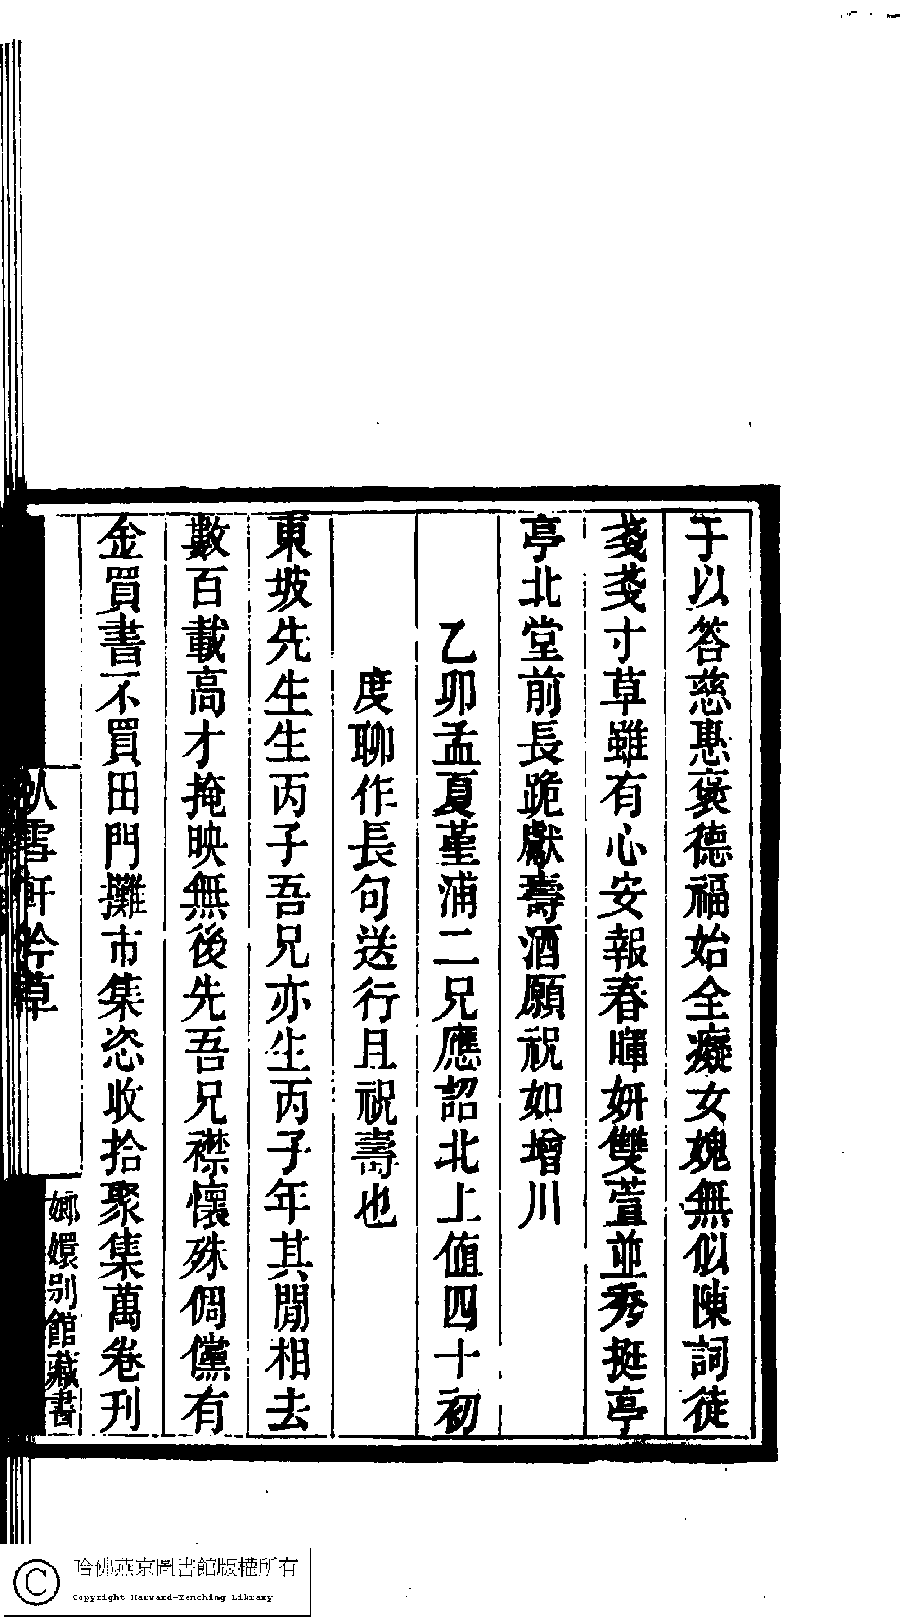 于以答慈惠褒德福始全癡女媿無似陳詞徒
戔戔寸草雖有心安報春暉妍雙萱並秀挺亭
亭北堂前長跪獻壽酒願祝如增川
乙卯孟夏堇浦二兄應詔北上值四十初
度聊作長句送行且祝壽也
東坡先生生丙子吾兄亦生丙子年其閒相去
數百載高才掩映無後先吾兄襟懷殊倜儻有
金買書不買田門攤市集恣收拾聚集萬卷刊
臥雪軒吟草
嫏嬛別館藏書
哈佛燕京圖書館版權所有
Copyright Harvard-Yenching Library